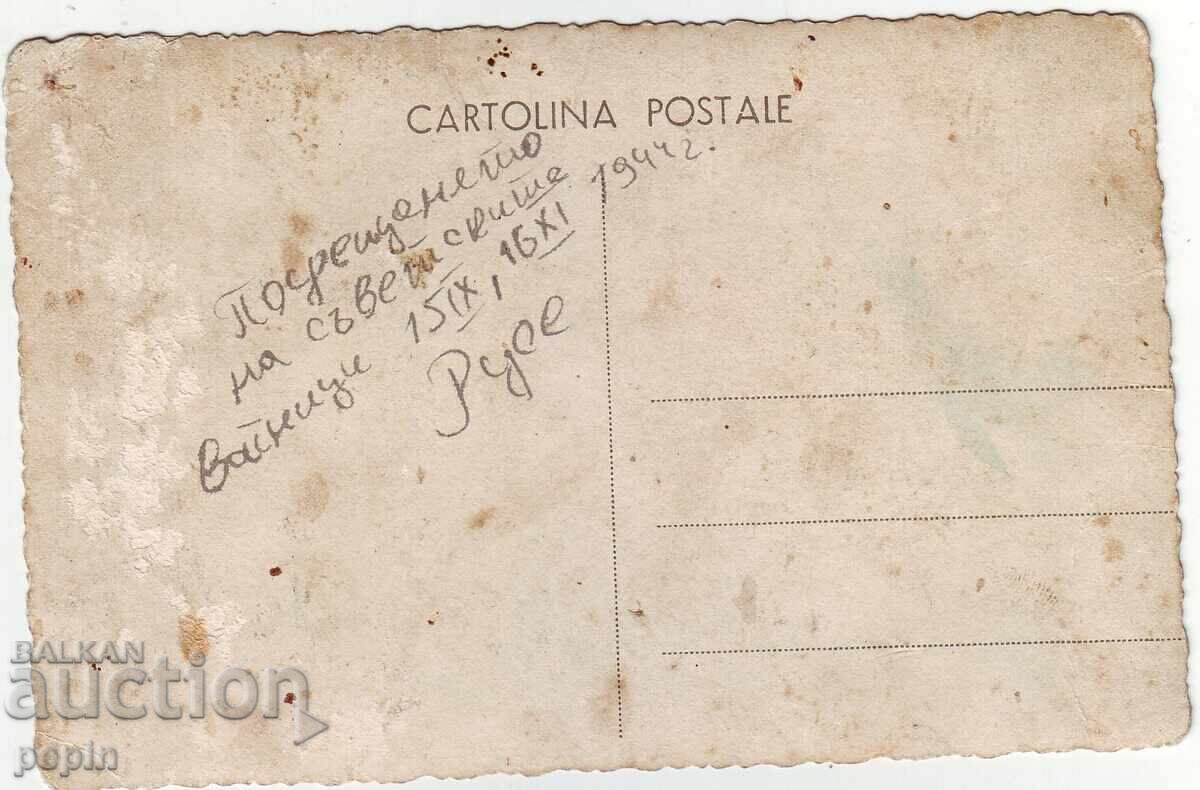 CARTOLINA POSTALE
Посрещането
на съветските
войници 15 IX, 16 XI 1944 г.
Русе
BALKAN
auction
popin